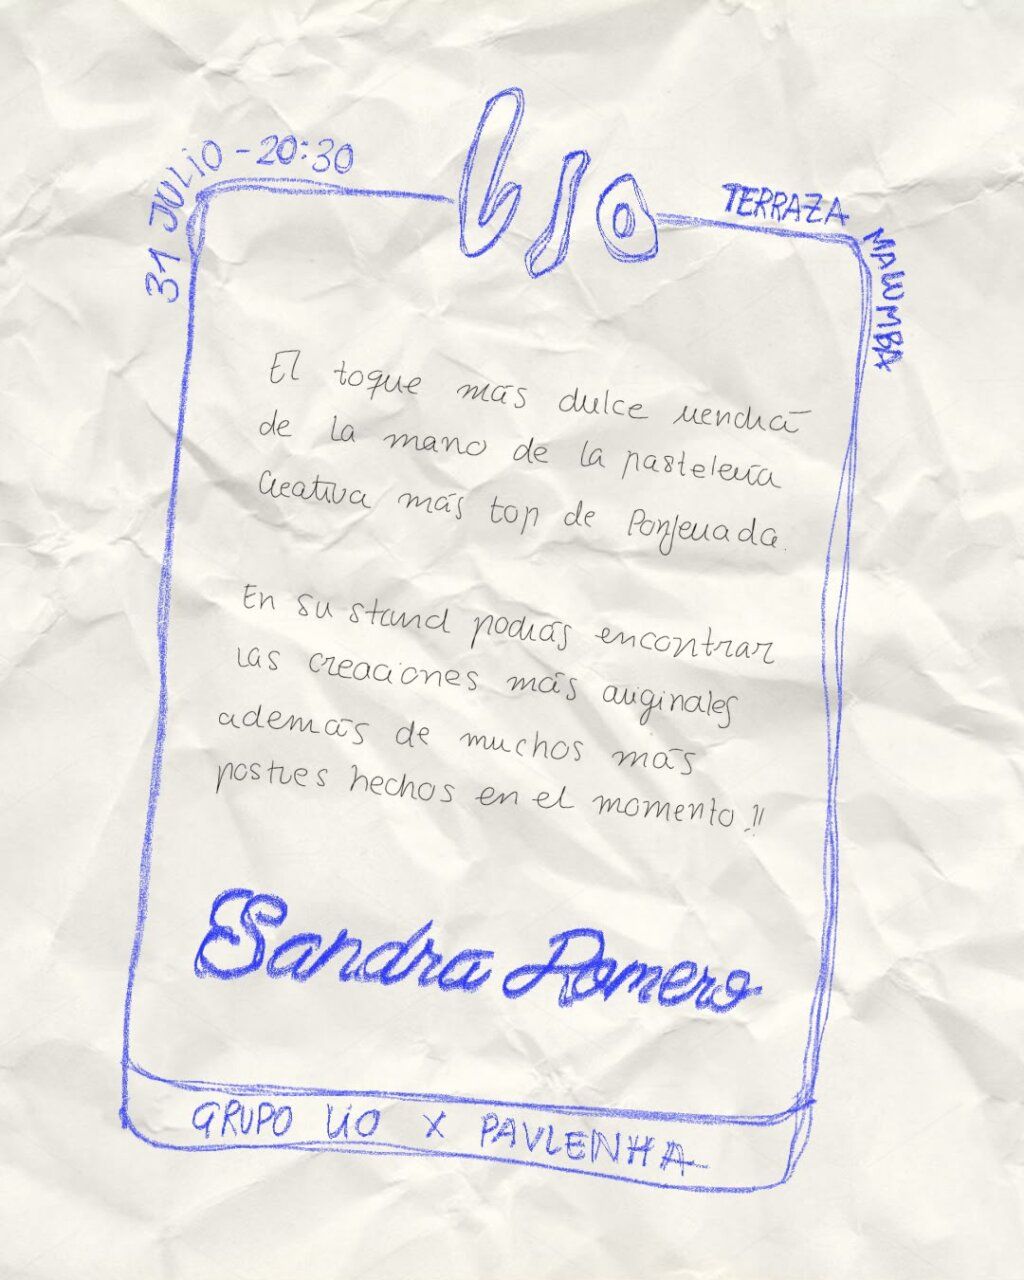 31 JULIO - 20:30
LIO
TERRAZA
MALUMBA
El toque más dulce vendrá
de la mano de la pastelería
Creativa más top de Ponferrada.
En su stand podrás encontrar
las creaciones más originales
además de muchos más
postres hechos en el momento!!
Sandra Romero
GRUPO LIO X PAVLENHA